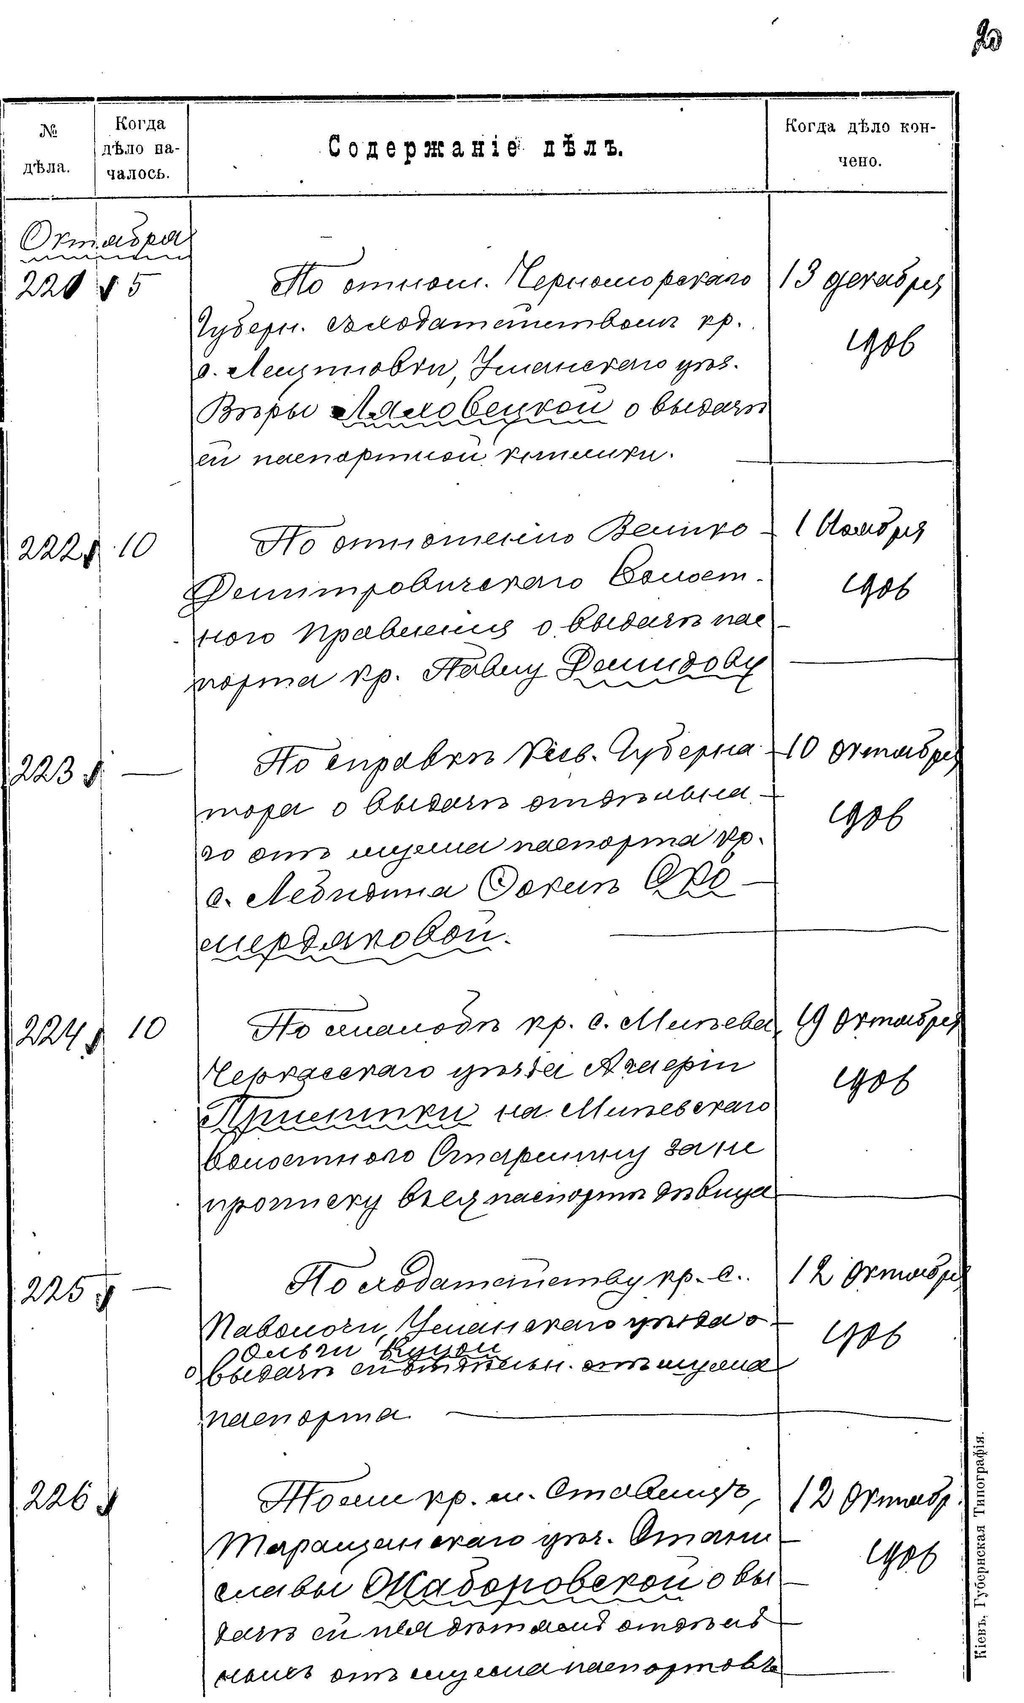 20
№ дѣла.
Когда дѣло началось.
Содержаніе дѣлъ.
Когда дѣло кончено.
Октября
221 5
По отнош. Черноморскаго
Губерн. съ ходатайствомъ кр.
с.
Уманскаго уѣз.
Вѣры Ляховецкой о выдачѣ
ей паспортной книжки.
13 декабря
1906
222 10
По отношенію Велико-
Димитровичскаго Волост-
ного Правленія о выдачѣ пас
порта кр. Павлу Демидову
1 Ноября
1906
223 —
По справкѣ Кіев. Губерна-
тора о выдачѣ отдѣльна-
го отъ мужа паспорта кр.
с. Лебедина
Ско-
мердяковой.
10 октября
1906
224 10
По жалобѣ кр. с. Млѣева,
Черкасскаго уѣзда
на Млѣевскаго
Волостного Старшину за не
прописку въ ея паспортъ дѣвица
19 октября
1906
225 —
По ходатайству кр. с.
Паволочи, Уманскаго уѣзда
Ольги Куцой
о выдачѣ ей отдѣльн. отъ мужа
паспорта
12 октября
1906
226
То же кр. м. Ставищъ,
Таращанскаго уѣз. Стани-
славы Жаборовской о вы-
дачѣ ей
дѣтямъ отдѣль
ныхъ отъ мужа паспортовъ
12 октябр.
1906
Кіевъ, Губернская Типографія.